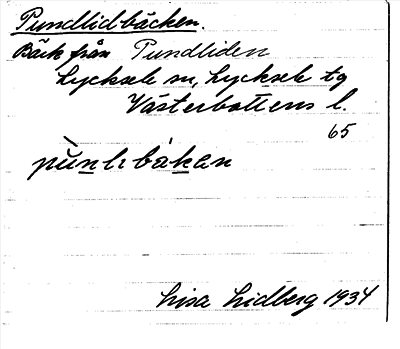 Pundlidbäcken.
Bäck från Pundliden
Lycksele sn, Lycksele tg
Västerbottens l.
65
pùnlıbákan
Lisa Lidberg 1934